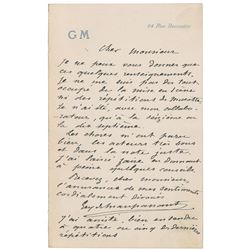 GM
Cher Monsieur
Je ne peux vous donner que
ces quelques renseignements.
Je ne me suis pas du tout
occupé de la mise en scène
ni des répétitions de Musotte
Je n'ai été, avec mon collabo-
rateur, qu'à la sixième ou
la dix septième.
Les choses m'ont paru
bien, les acteurs très sûrs
et dans la note juste.
J'ai laissé faire en donnant
à peine quelques conseils
Recevez, cher monsieur,
l'assurance de mes sentiments
cordialement dévoués
Guy de Maupassant
J'ai assisté bien entendu
à quatre ou cinq des dernières
répétitions